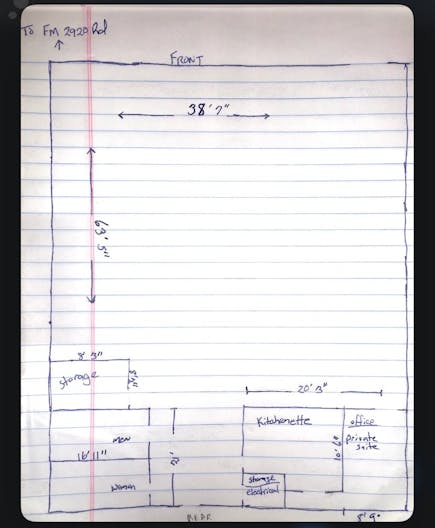 To FM 2920 Rd
FRONT
38' 7"
63' 5"
8' 3"
Storage
20' 3"
Kitchenette
office
private
suite
Men
16' 11"
12'
Women
storage
electrical
REAR
8' 9"